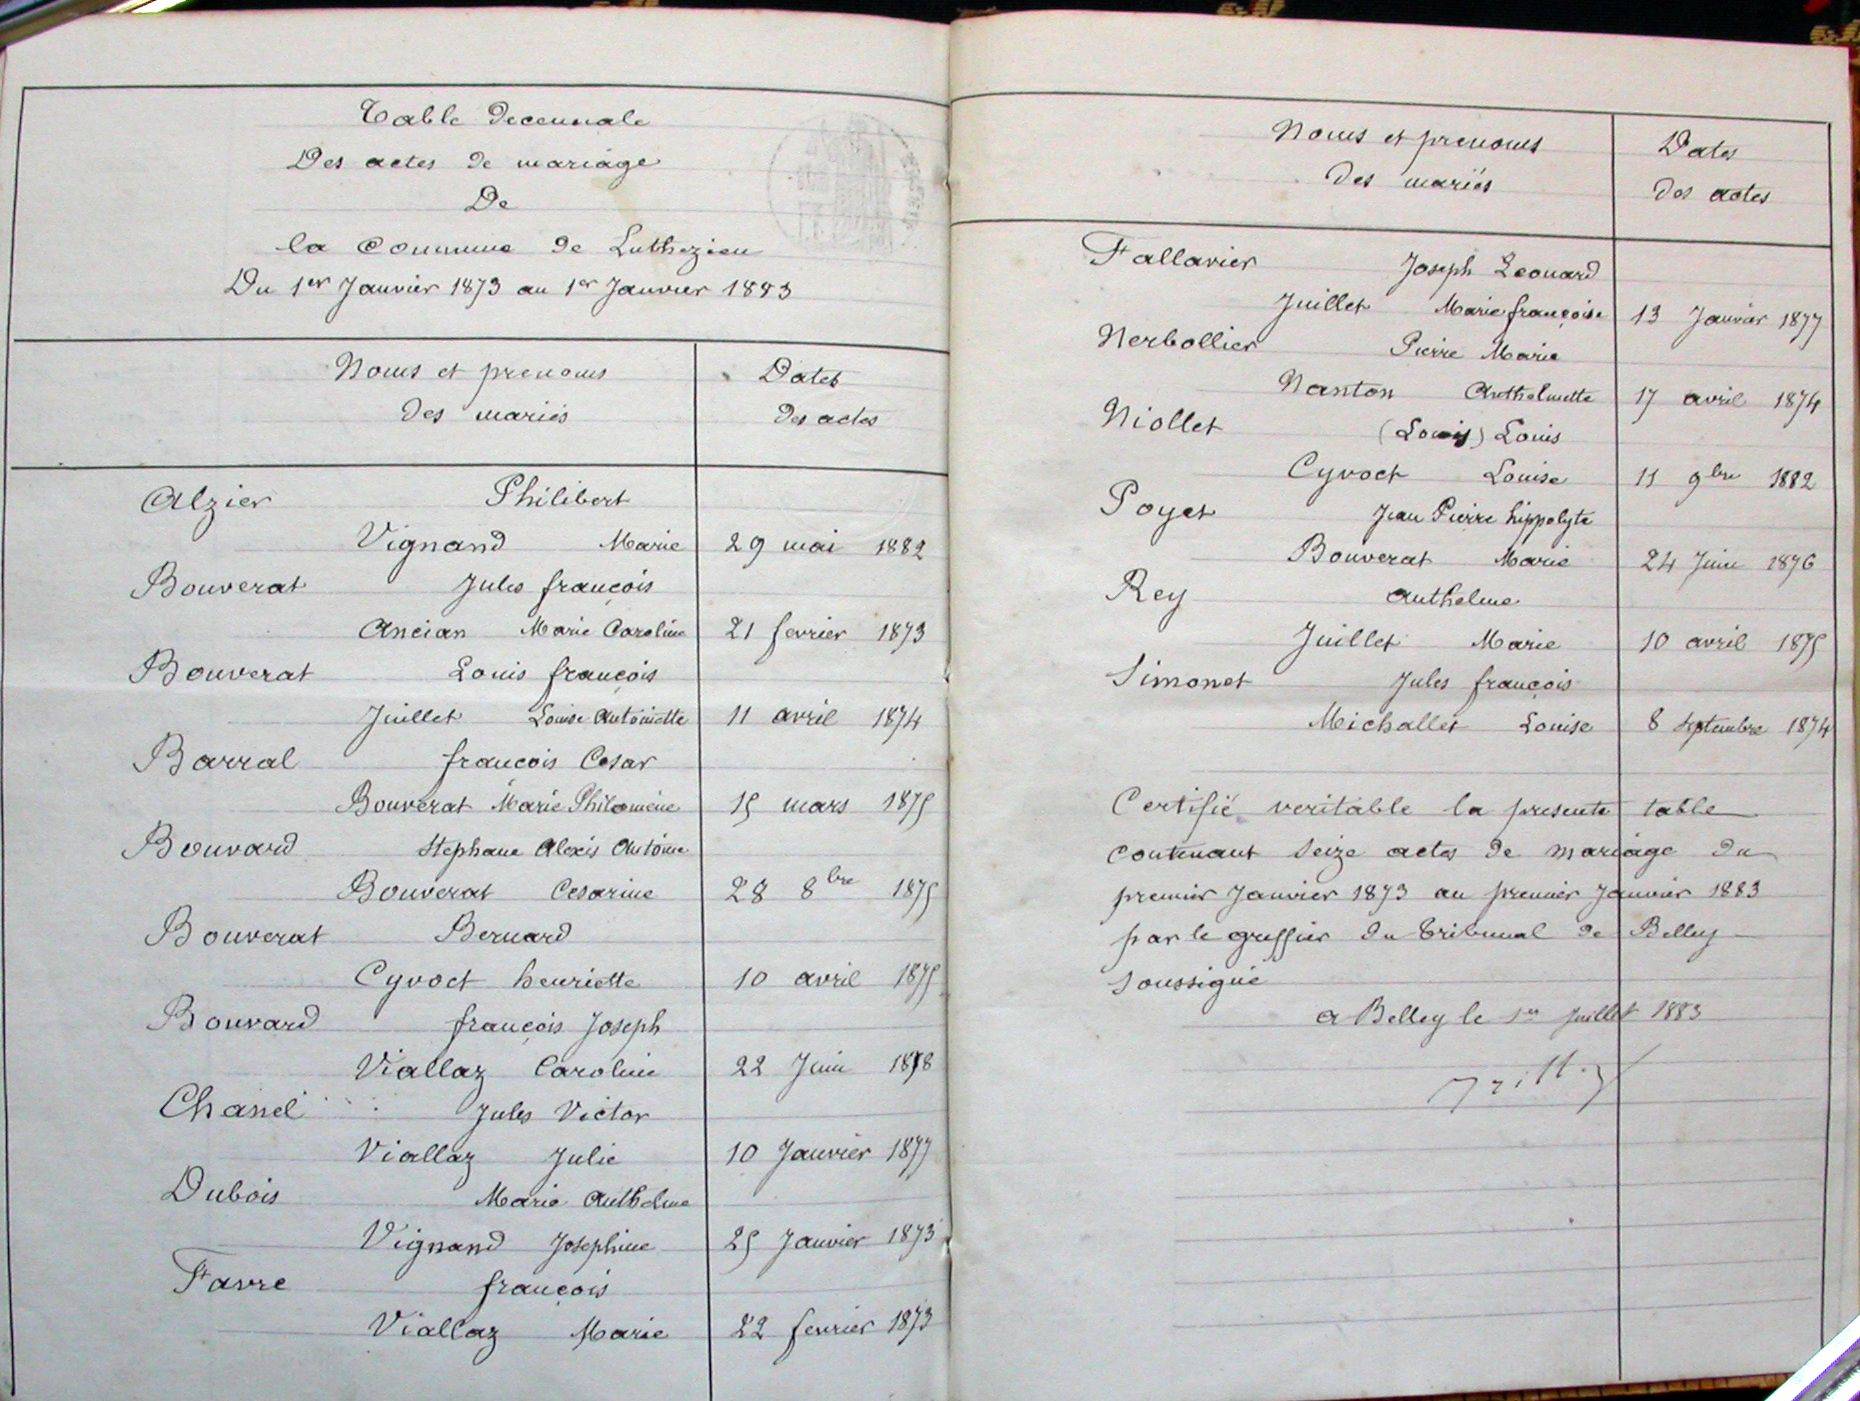 Table Decennale
Des actes de mariage
De
la Commune de Luthezieu
Du 1er Janvier 1873 au 1er Janvier 1883
Noms et prenoms
des mariés
Dates
des actes
Alzier Philibert
Vignand Marie 29 mai 1882
Bouverat Jules françois
Ancian Marie Caroline 21 fevrier 1873
Bouverat Louis françois
Juillet Louise Antoinette 11 avril 1874
Barral françois Cesar
Bouverat Marie Philomène 15 mars 1875
Bouvard Stephane Alexis Antoine
Bouverat Cesarine 28 8bre 1875
Bouverat Bernard
Cyvoct henriette 10 avril 1875
Bouvard françois Joseph
Viallaz Caroline 22 Juin 1878
Chanel Jules Victor
Viallaz Julie 10 Janvier 1877
Dubois Marie Anthelme
Vignand Josephine 25 Janvier 1873
Favre françois
Viallaz Marie 22 fevrier 1873
Noms et prenoms
des mariés
Dates
des actes
Fallavier Joseph Leonard
Juillet Marie françoise 13 Janvier 1877
Nerbollier Pierre Marie
Nanton Anthelmette 17 avril 1874
Niollet (Louis) Louis
Cyvoct Louise 11 9bre 1882
Poyet Jean Pierre hippolyte
Bouverat Marie 24 Juin 1876
Rey Anthelme
Juillet Marie 10 avril 1875
Simonet Jules françois
Michallet Louise 8 Septembre 1874
Certifié veritable la presente table
contenant Seize actes de mariage du
premier Janvier 1873 au premier Janvier 1883
par le greffier du Tribunal de Belley
soussigné
a Belley le 1er Juillet 1883